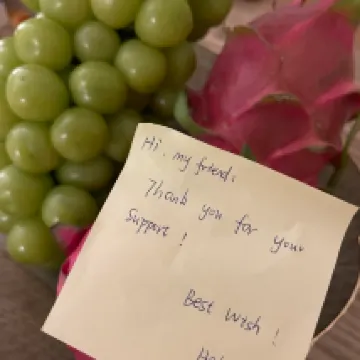 Hi, my friend:
Thank you for your
Support !
Best wish !